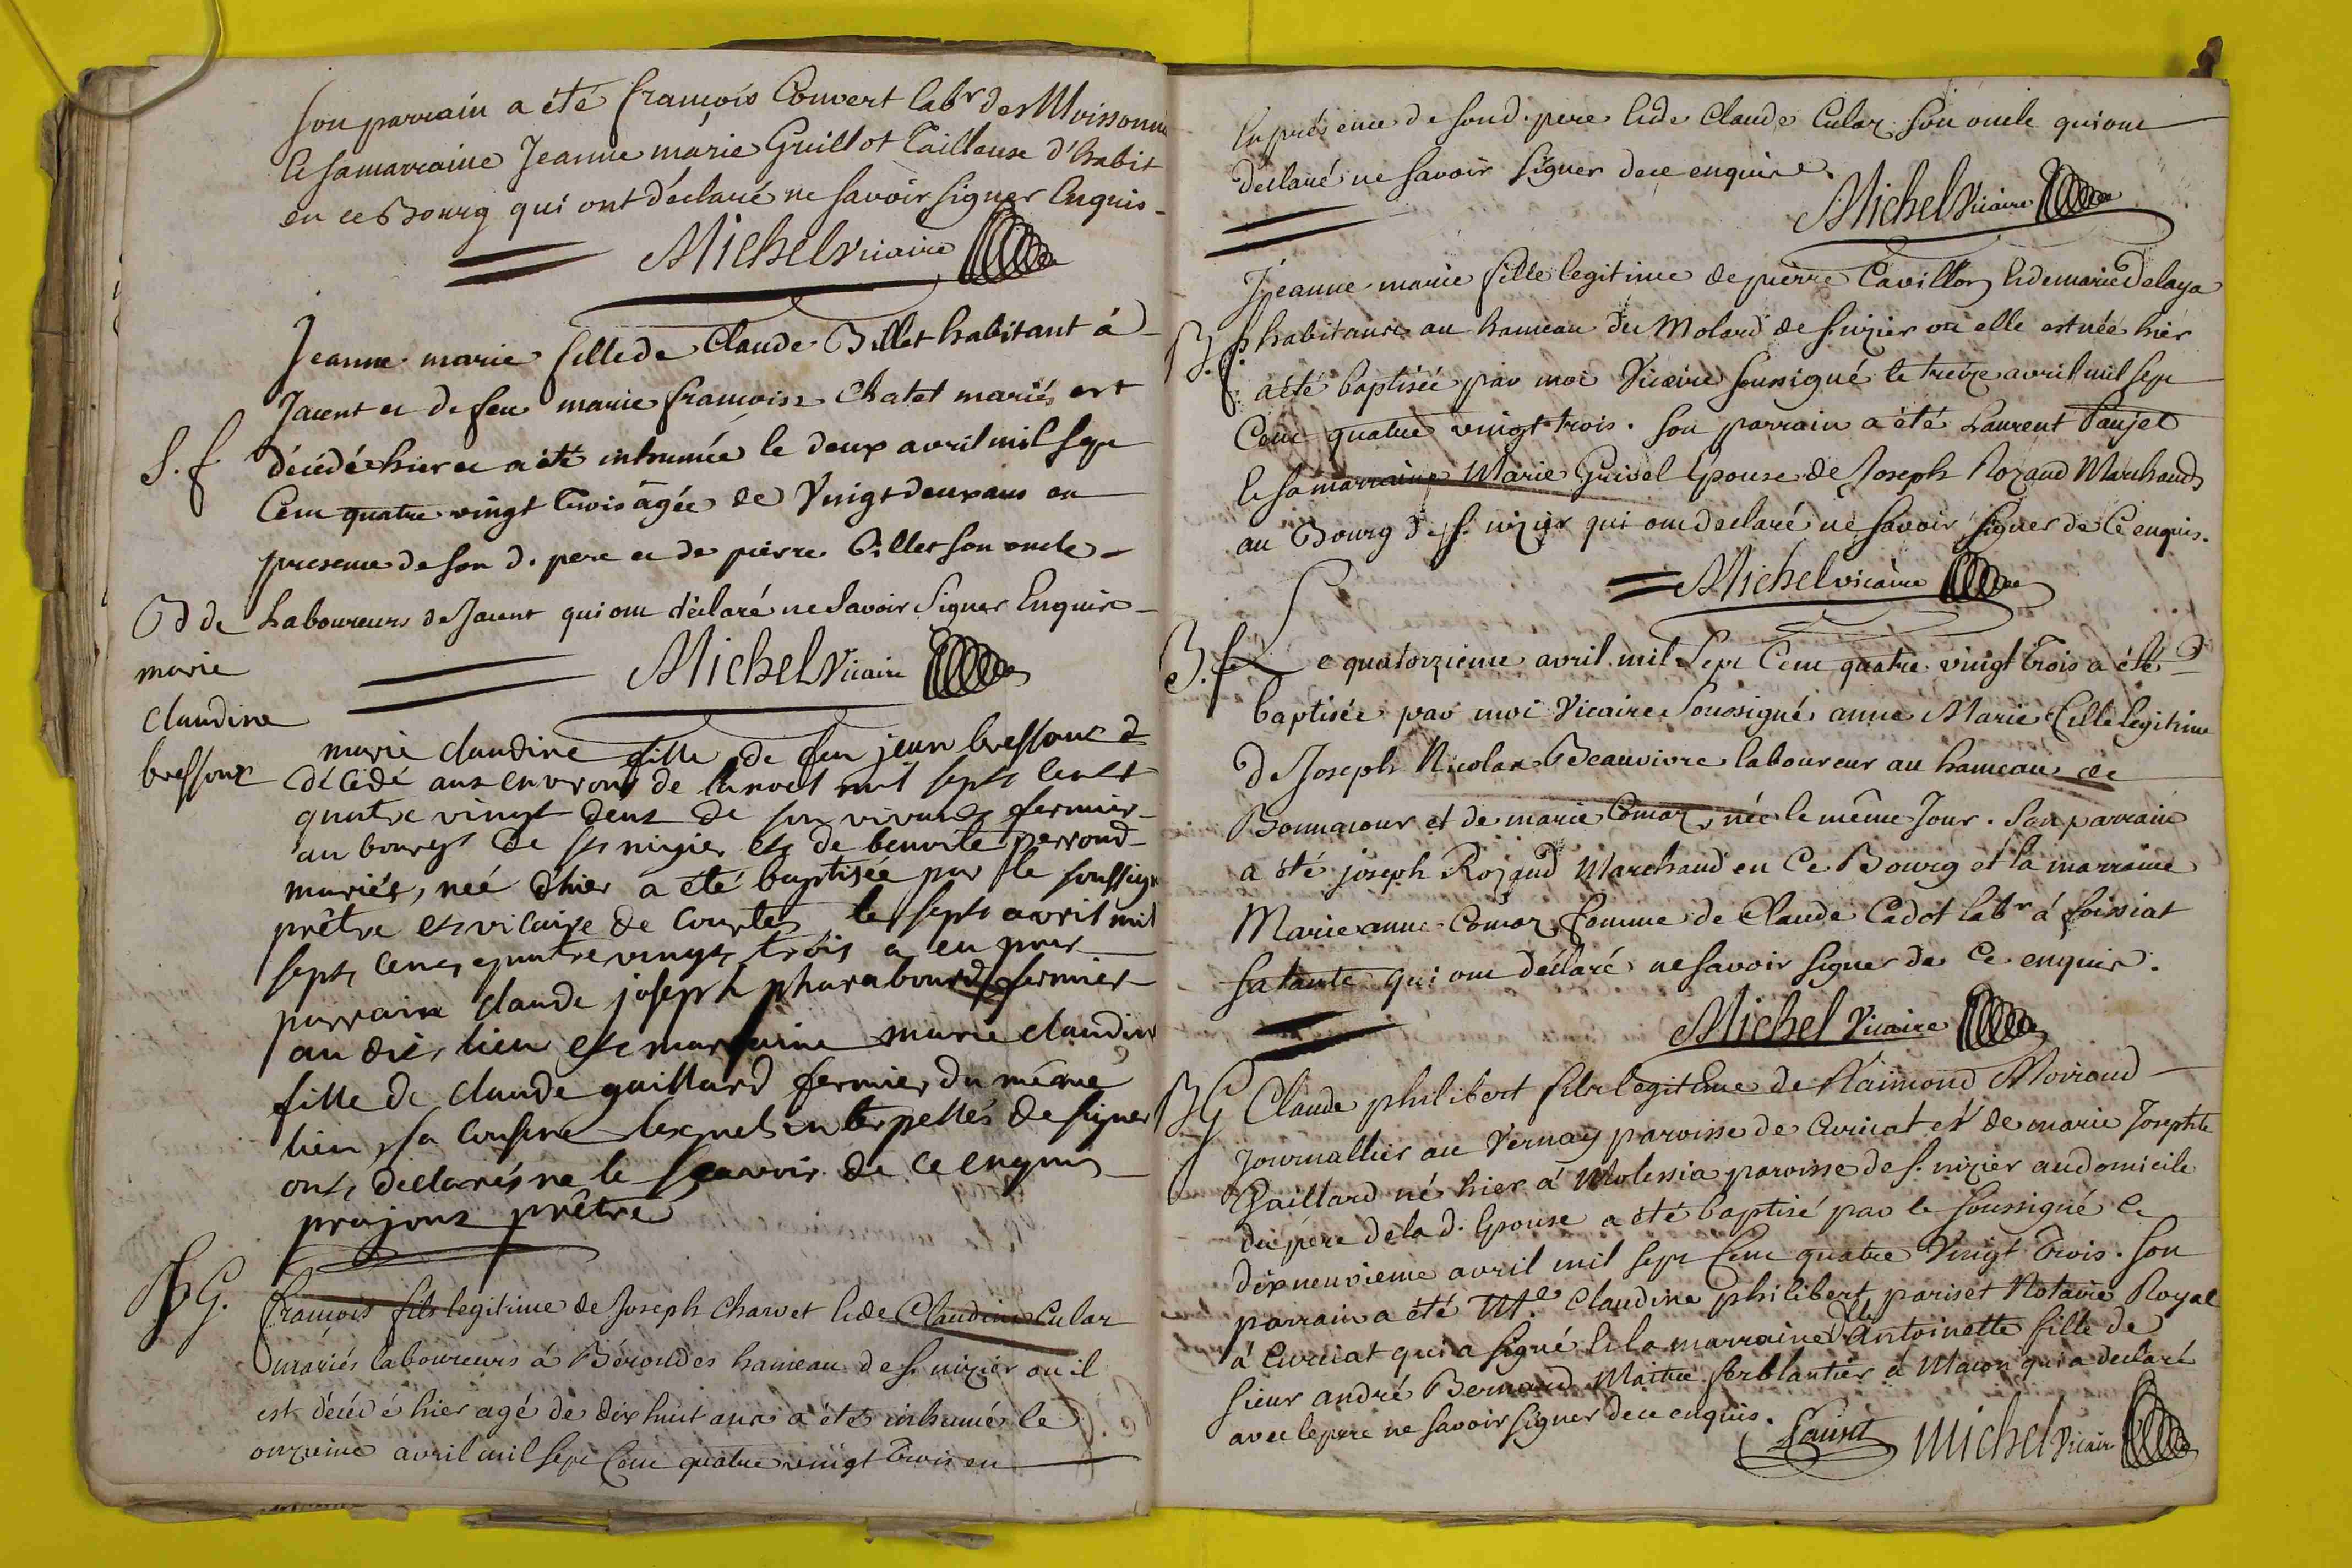 son parrain a été françois Convert labr des Moissonn
et sa marraine Jeanne marie Guillot Tailleuse d'habit
en ce Bourg qui ont déclaré ne savoir signer Enquis
Michel Vicaire
Jeanne marie fille de Claude Billet habitant à
Jacent et de feu marie françoise Chatet mariés est
S. f décédée hier et a été inhumée le deux avril mil sept
Cent quatre vingt trois âgée de Vingt deux ans en
presence de son d. pere et de pierre Billet son oncle
Laboureurs de Jacent qui ont déclaré ne savoir signer Enquis
Michel Vicaire
B d de
marie
claudine
bressoux
marie claudine fille de feu jean bressoux
décédé aux environs de la noel mil sept cent
quatre vingt deux de son vivant fermier
au bourg de st nizier et de benoite perroud
mariés, neé d'hier a été baptisée par le soussigné
prêtre et vicaire de courtes le sept avril mil
sept cent quatre vingt trois a eu pour
parrain claude joseph pharaboud fermier
au dit lieu et marraine marie claudine
fille de claude guillard fermier du même
lieu sa cousine lesquels interpellés de signer
ont declarés ne le sçavoir de ce enquis
prajoux prêtre
S G. françois fils legitime de Joseph Charvet et de Claudine Cular
mariés laboureurs à Béroudes hameau de S. nizier où il
est décédé hier agé de dix huit ans a été inhumé le
onzieme avril mil sept Cent quatre vingt trois en
la présence de son d. pere et de Claude Cular son oncle qui ont
déclaré ne savoir signer de ce enquis.
Michel Vicaire
Jeanne marie fille legitime de pierre Cavillon et de marie Delaya
B. f. habitants au hameau du Molard de S. nizier où elle est née hier
a été baptisée par moi Vicaire soussigné le treize avril mil sept
Cent quatre vingt trois. son parrain a été Laurent Paujet
et sa marraine Marie Grivel Epouse de Joseph Rozand Marchand
au Bourg de S. nizier qui ont declaré ne savoir signer de Ce enquis.
Michel vicaire
B. f. Le quatorzieme avril mil Sept Cent quatre vingt trois a été
baptisée par moi Vicaire Soussigné anne Marie fille legitime
de Joseph Nicolas Beauvivre laboureur au hameau de
Bonnacour et de marie Comaz, née le même Jour. Son parrain
a été joseph Rozand Marchand en Ce Bourg et la marraine
Marie anne Comaz femme de Claude Cadot labr à foissiat
sa tante qui ont déclaré ne savoir signer de Ce enquis.
Michel Vicaire
B G Claude philibert fils legitime de Raimond Moiroud
Journallier au Vernay paroisse de Curciat et de marie Josephte
Gaillard né hier à Molessia paroisse de S. nizier au domicile
du pere de la d. Epouse a été baptisé par le soussigné le
dixneuvieme avril mil sept Cent quatre Vingt trois. son
parrain a été Me Claudine philibert pariset Notaire Royal
à Curciat qui a signé et la marraine Dlle Antoinette fille de
sieur andré Bernard Maitre ferblantier à Macon qui a declaré
avec le pere ne savoir signer de ce enquis.
Pariset Michel Vicaire